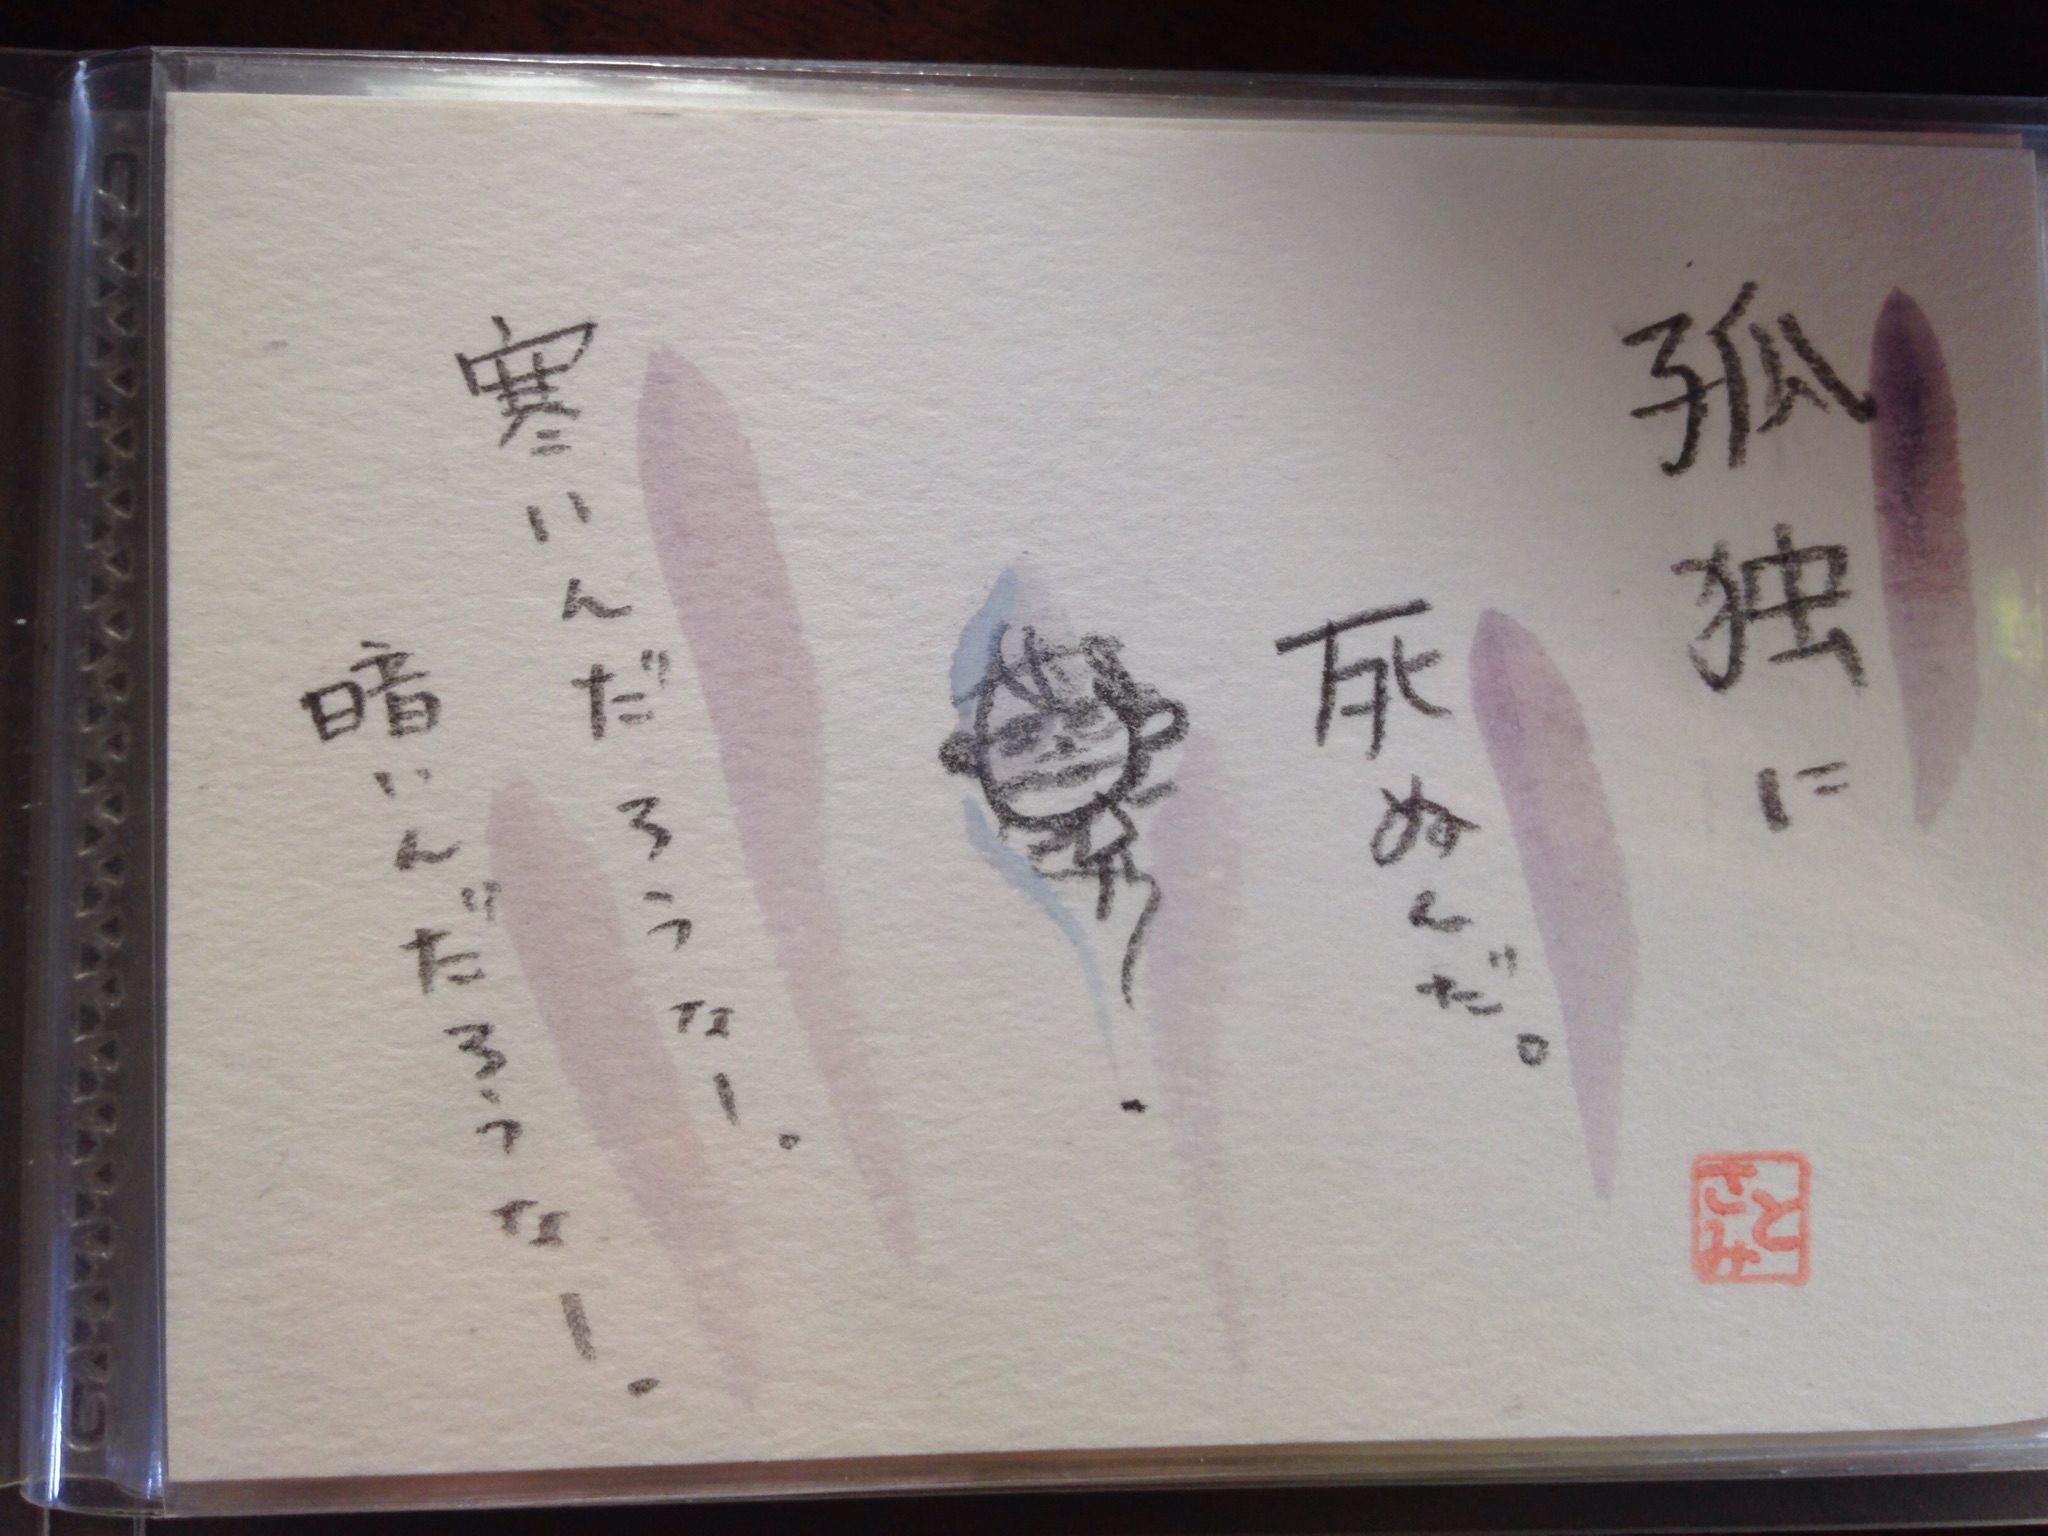 孤独に
死ぬんだ。
寒いんだろうなー。
暗いんだろうなー。
さとみ